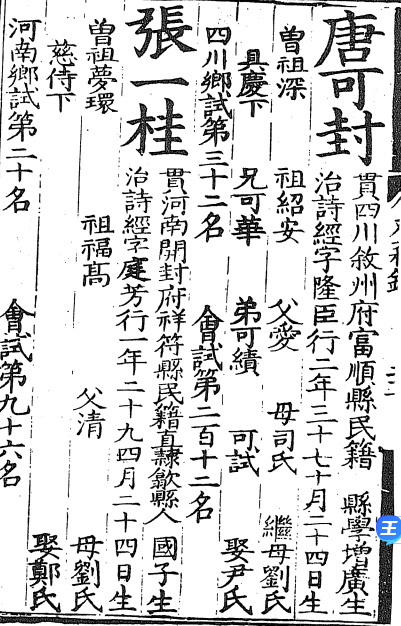 唐可封
貫四川敘州府富順縣民籍 縣學增廣生
治詩經字隆臣行二年三十七十月二十四日生
曾祖深 祖紹安 父愛 母司氏 繼母劉氏
具慶下 兄可華 弟可績 可試 娶尹氏
四川鄉試第三十二名 會試第二百十二名
張一桂
貫河南開封府祥符縣民籍直隸歙縣人 國子生
治詩經字庭芳行一年二十九四月二十四日生
曾祖夢環 祖福高 父清 母劉氏
慈侍下 娶鄭氏
河南鄉試第二十名 會試第九十六名
王